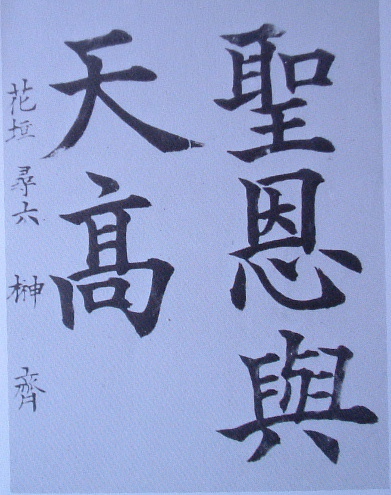 聖恩與
天高
花垣 尋六 榊 齊